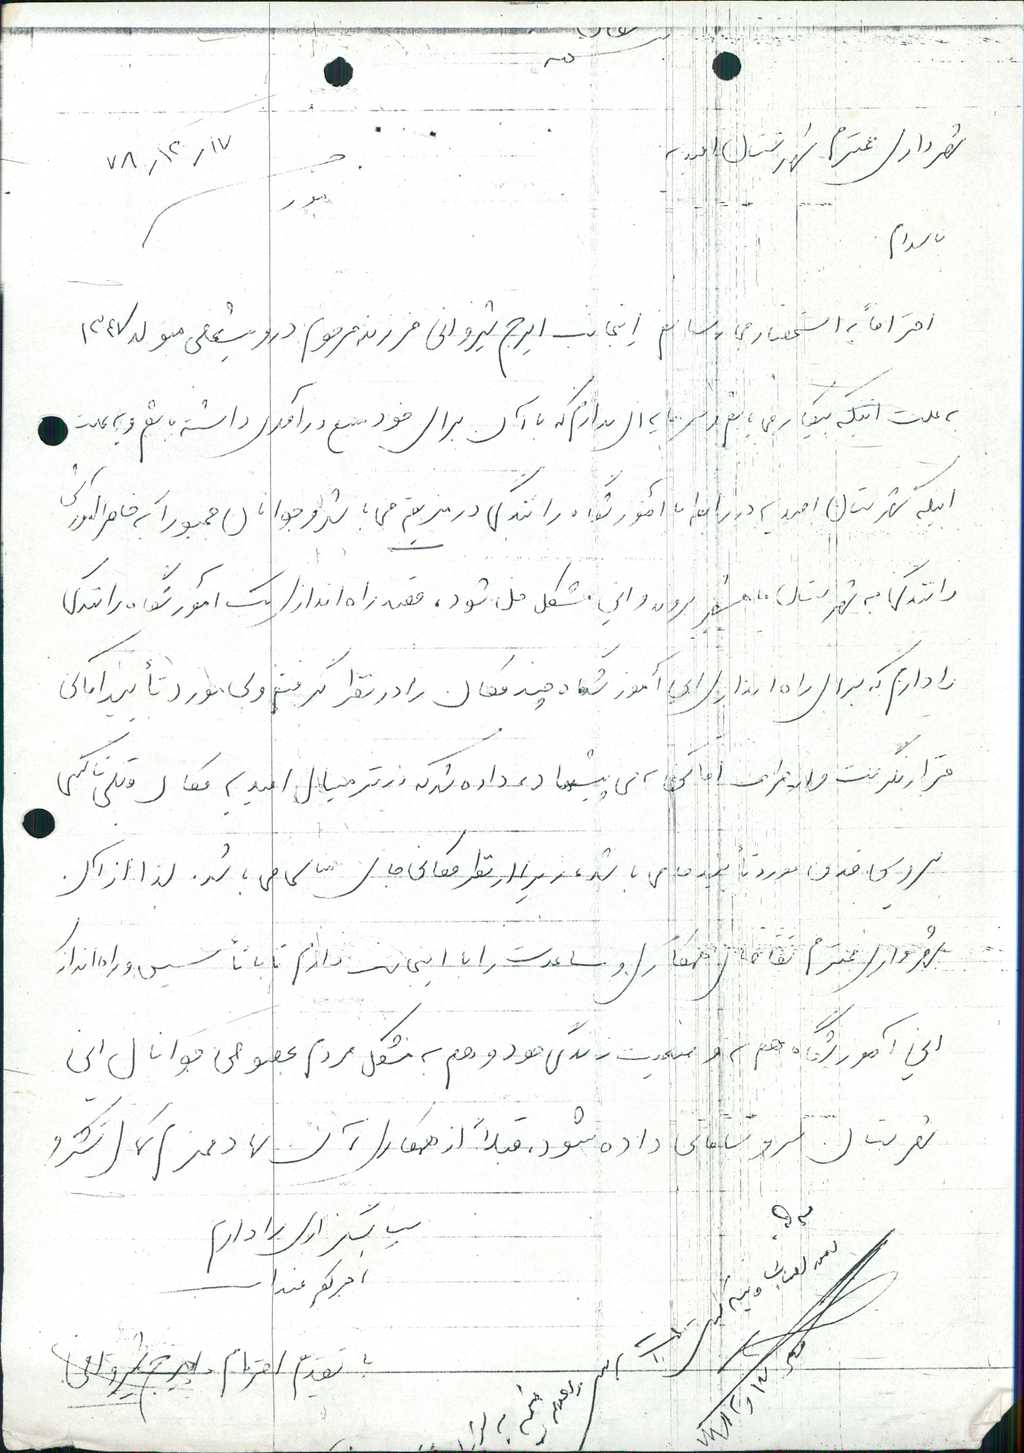 شهرداری محترم شهرستان امیدیه
۷۸/۱۲/۱۷
با سلام
احتراماً به استحضار میرساند اینجانب ایرج شیروانی فرزند مرحوم درویشعلی متولد ۱۳۴۷
به علت اینکه بیکار می باشم و سرمایه ای ندارم که با آن برای خود منبع درآمدی داشته باشم و به علت
اینکه شهرستان امیدیه در رابطه با آموزشگاه رانندگی در مضیقه می باشد و جوانان مجبورند به خاطر آموزش
رانندگی به شهرستان ماهشهر بروند و این مشکل حل شود، قصد راه اندازی یک آموزشگاه رانندگی
را دارم که برای راه اندازی این آموزشگاه چند مکان را در نظر گرفتم ولی مورد تأیید اماکن
قرار نگرفت و از طرف اماکن به من پیشنهاد داده شد که در ترمینال امیدیه مکان قبلی تاکسی
سرویس مورد تأیید ما می باشد، زیرا از نظر مکانی جای مناسبی می باشد. لذا از آن
شهردار محترم تقاضای همکاری و مساعدت را با اینجانب دارم تا با تأسیس و راه اندازی
این آموزشگاه هم به وضعیت زندگی خود و هم به مشکل مردم بخصوص جوانان این
شهرستان سر و سامانی داده شود، قبلاً از همکاری آن مقام محترم کمال تشکر و
سپاسگزاری را دارم
اجرکم عندالله
با تقدیم احترام ایرج شیروانی